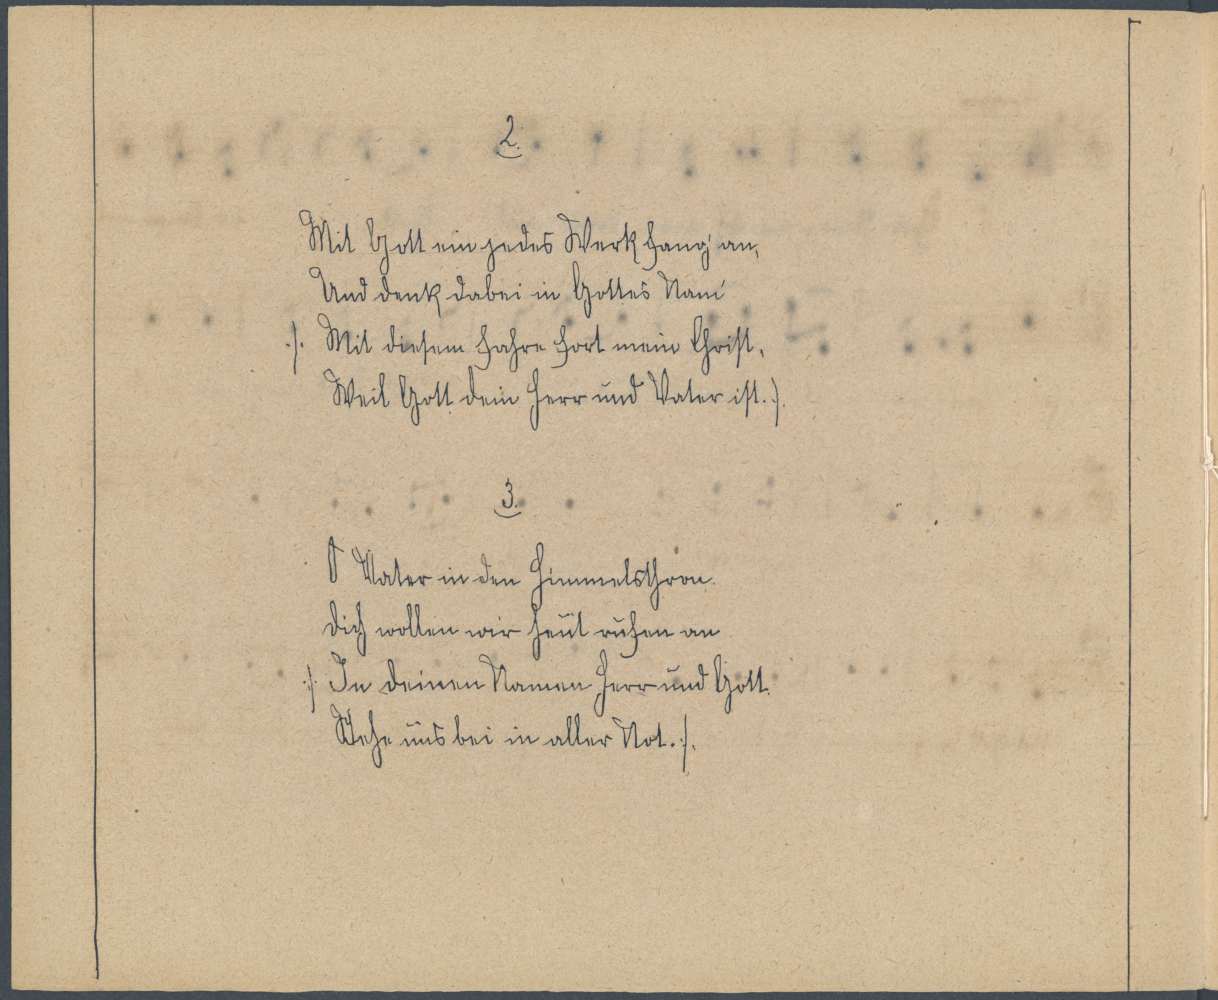 2.
Mit Gott ein jedes Werk fang' an,
Und denk dabei in Gottes Nam'
:/: Mit diesem fahre fort mein Christ,
Weil Gott dein Herr und Vater ist. :/:
3.
O Vater in den Himmelsthron
dich wollen wir heut rufen an
:/: In deinen Namen Herr und Gott
Stehe uns bei in aller Not. :/: